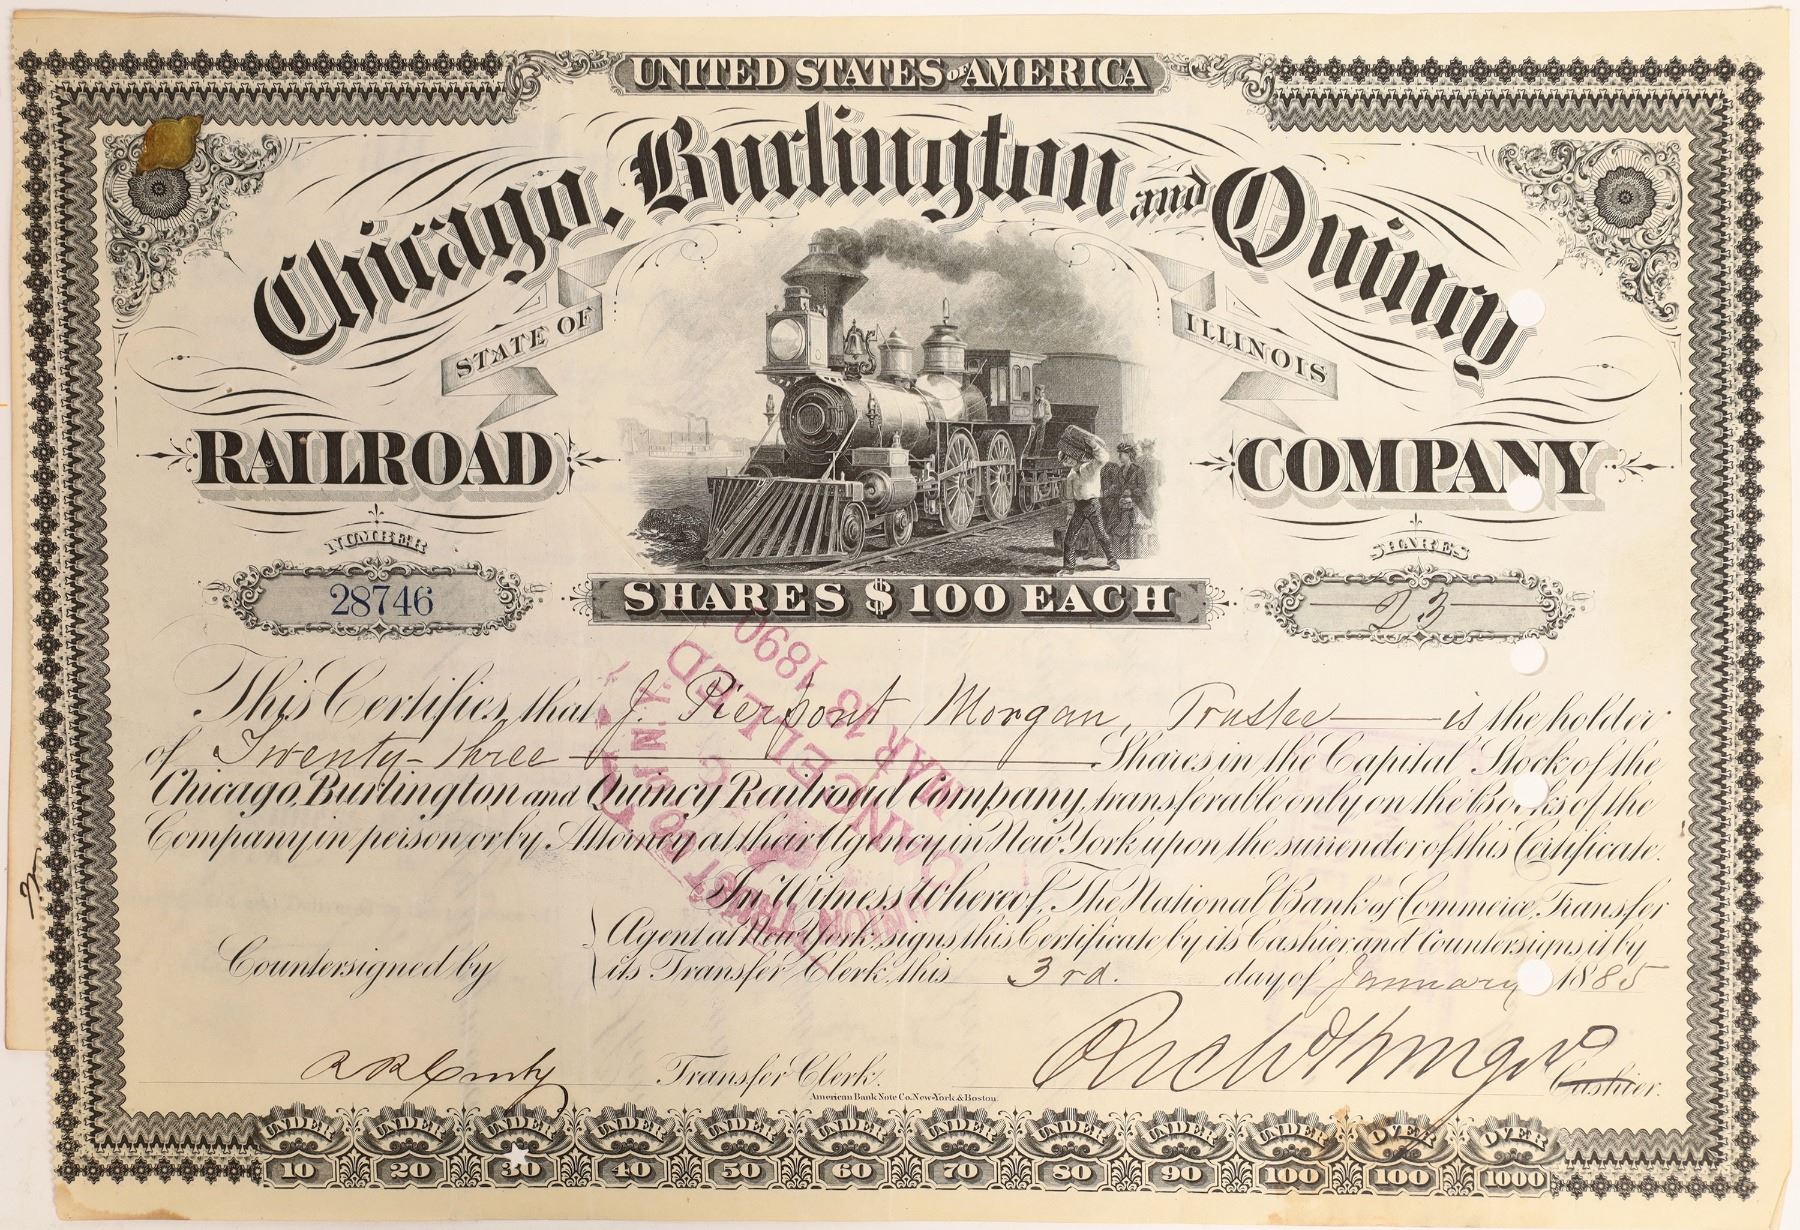 UNITED STATES OF AMERICA
Chicago, Burlington and Quincy
STATE OF ILLINOIS
RAILROAD COMPANY
NUMBER
28746
SHARES $100 EACH
SHARES
23
This Certifies that J. Pierpont Morgan, Trustee is the holder
of Twenty-three Shares in the Capital Stock of the
Chicago, Burlington and Quincy Railroad Company, transferable only on the Books of the
Company in person or by Attorney at their Agency in New York upon the surrender of this Certificate.
In Witness Whereof, The National Bank of Commerce, Transfer
Agent at New York, signs this Certificate by its Cashier and Countersigns it by
its Transfer Clerk, this 3rd. day of January 1885
Countersigned by
Transfer Clerk.
Cashier.
American Bank Note Co. New-York & Boston.
CANCELLED
MAR 13 1890
UNION TRUST CO. OF N.Y.
UNDER 10
UNDER 20
UNDER 30
UNDER 40
UNDER 50
UNDER 60
UNDER 70
UNDER 80
UNDER 90
UNDER 100
OVER 100
OVER 1000